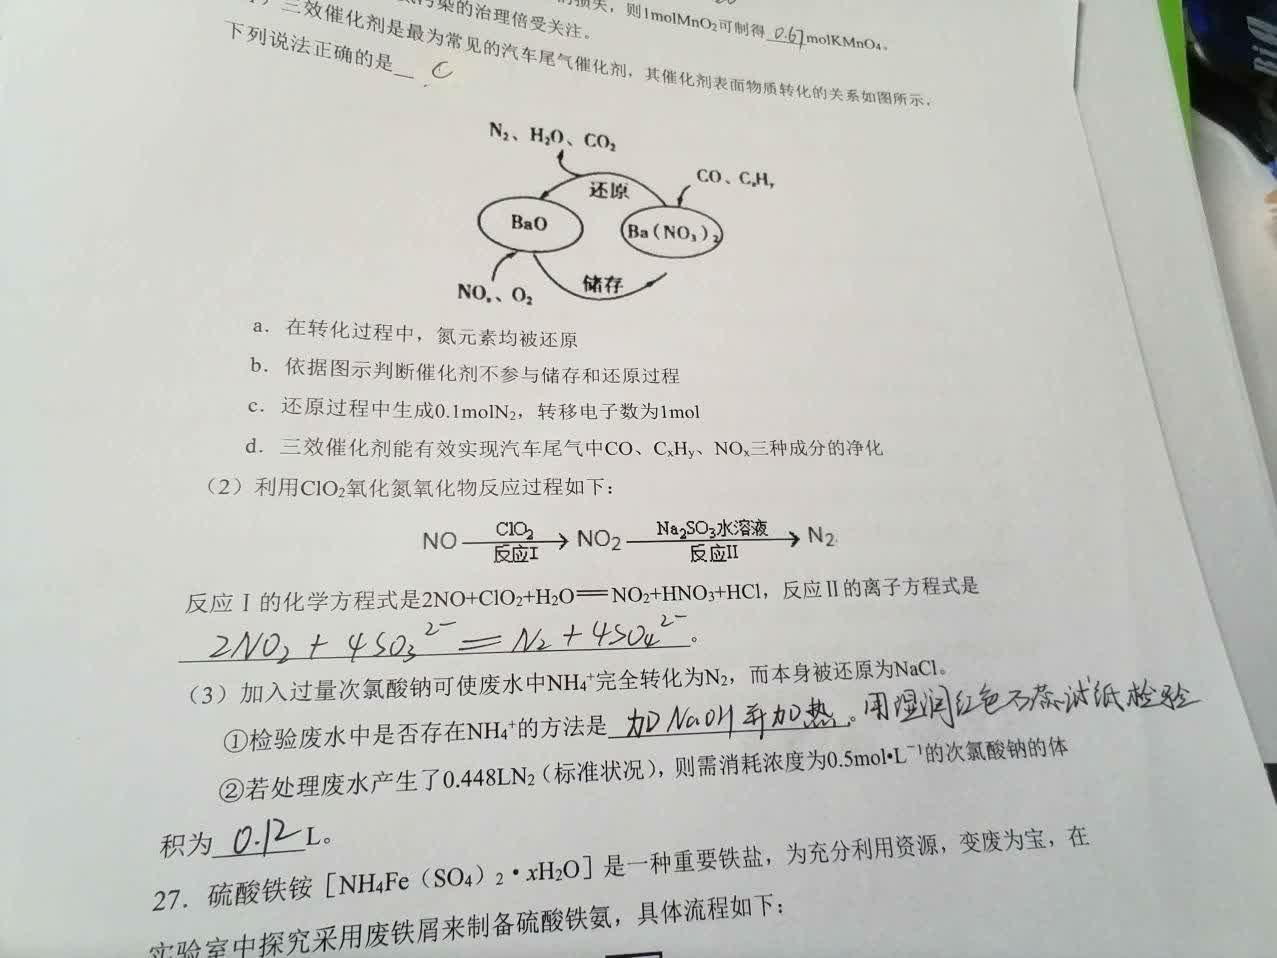 的损失，则1molMnO₂可制得 0.67 molKMnO₄。
污染的治理倍受关注。
三效催化剂是最为常见的汽车尾气催化剂，其催化剂表面物质转化的关系如图所示，
下列说法正确的是 C
N₂、H₂O、CO₂
CO、CₓHᵧ
还原
BaO
Ba(NO₃)₂
储存
NOₓ、O₂
a．在转化过程中，氮元素均被还原
b．依据图示判断催化剂不参与储存和还原过程
c．还原过程中生成0.1molN₂，转移电子数为1mol
d．三效催化剂能有效实现汽车尾气中CO、CₓHᵧ、NOₓ三种成分的净化
（2）利用ClO₂氧化氮氧化物反应过程如下：
NO ClO₂ 反应Ⅰ → NO₂ Na₂SO₃水溶液 反应Ⅱ → N₂
反应Ⅰ的化学方程式是2NO+ClO₂+H₂O══NO₂+HNO₃+HCl，反应Ⅱ的离子方程式是
2NO₂ + 4SO₃²⁻ = N₂ + 4SO₄²⁻。
（3）加入过量次氯酸钠可使废水中NH₄⁺完全转化为N₂，而本身被还原为NaCl。
①检验废水中是否存在NH₄⁺的方法是 加NaOH并加热。用湿润红色石蕊试纸检验
②若处理废水产生了0.448LN₂（标准状况），则需消耗浓度为0.5mol•L⁻¹的次氯酸钠的体
积为 0.12 L。
27．硫酸铁铵［NH₄Fe（SO₄）₂•xH₂O］是一种重要铁盐，为充分利用资源，变废为宝，在
实验室中探究采用废铁屑来制备硫酸铁氨，具体流程如下：